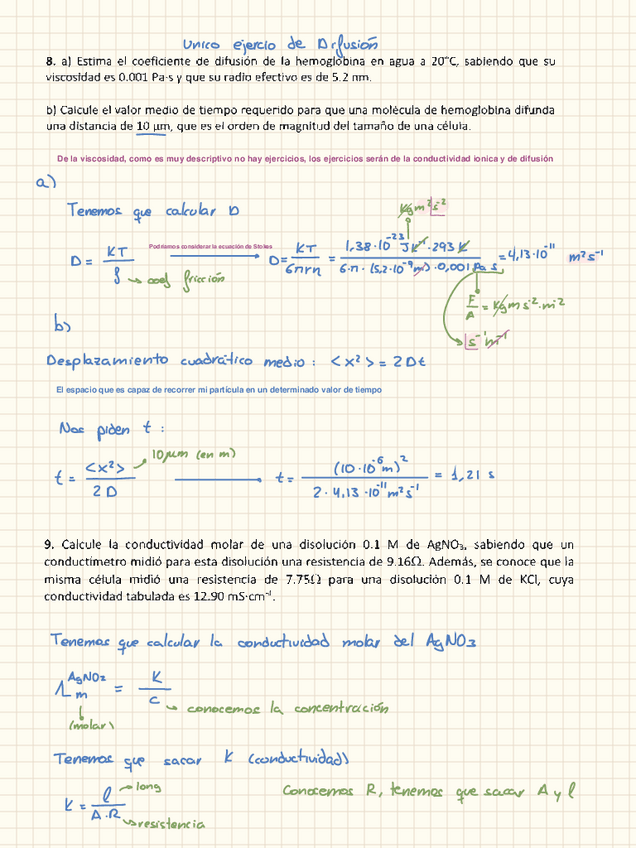 Unico ejercio de Difusión
8. a) Estima el coeficiente de difusión de la hemoglobina en agua a 20°C, sabiendo que su
viscosidad es 0.001 Pa·s y que su radio efectivo es de 5.2 nm.
b) Calcule el valor medio de tiempo requerido para que una molécula de hemoglobina difunda
una distancia de 10 µm, que es el orden de magnitud del tamaño de una célula.
De la viscosidad, como es muy descriptivo no hay ejercicios, los ejercicios serán de la conductividad ionica y de difusión
a)
Tenemos que calcular D
Kg m² s⁻²
D = KT / f Podríamos considerar la ecuación de Stokes D = KT / 6πrη = 1,38·10⁻²³ J K⁻¹ · 293 K / 6·π·(5,2·10⁻⁹ m)·0,001 Pa s = 4,13·10⁻¹¹ m² s⁻¹
coef fricción
F/A = Kg m s⁻² · m⁻²
s⁻¹ m⁻¹
b)
Desplazamiento cuadrático medio: <x²> = 2Dt
El espacio que es capaz de recorrer mi partícula en un determinado valor de tiempo
Nos piden t:
10 µm (en m)
t = <x²> / 2D t = (10·10⁻⁶ m)² / 2·4,13·10⁻¹¹ m² s⁻¹ = 1,21 s
9. Calcule la conductividad molar de una disolución 0.1 M de AgNO₃, sabiendo que un
conductímetro midió para esta disolución una resistencia de 9.16Ω. Además, se conoce que la
misma célula midió una resistencia de 7.75Ω para una disolución 0.1 M de KCl, cuya
conductividad tabulada es 12.90 mS·cm⁻¹.
Tenemos que calcular la conductividad molar del AgNO3
Λm AgNO3 = K / c conocemos la concentración
(molar)
Tenemos que sacar K (conductividad)
K = l / A·R long Conocemos R, tenemos que sacar A y l
resistencia